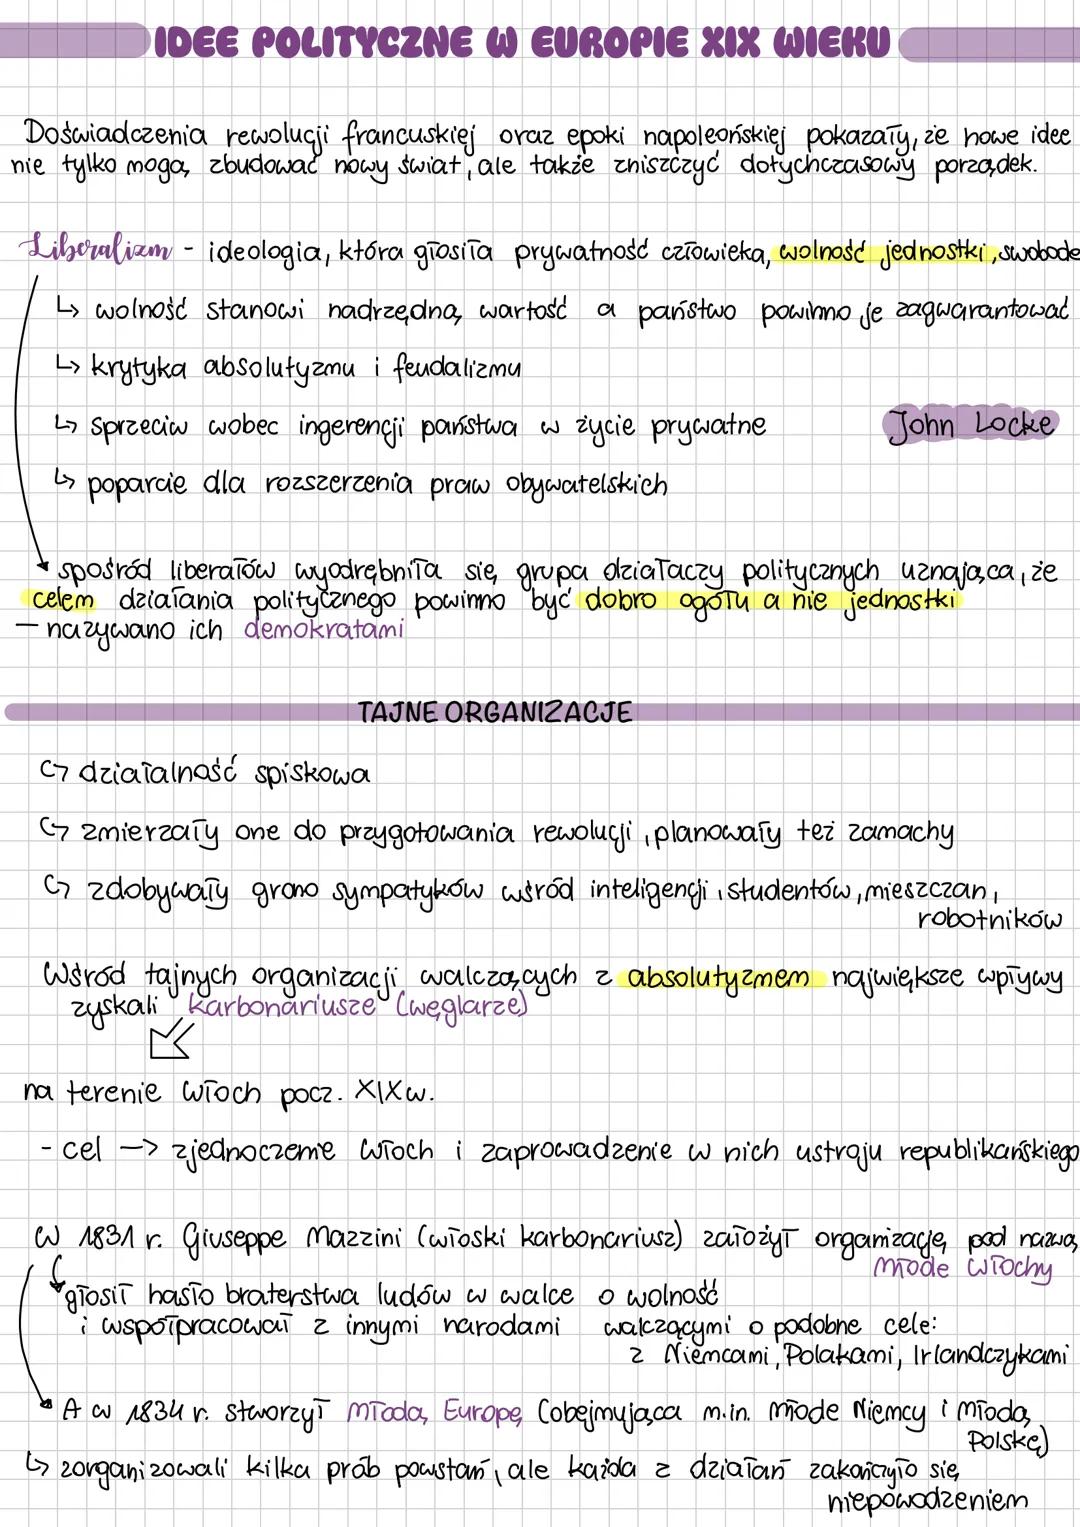 IDEE POLITYCZNE W EUROPIE XIX WIEKU
Doświadczenia rewolucji francuskiej oraz epoki napoleońskiej pokazały, że nowe idee
nie tylko mogą zbudować nowy świat, ale także zniszczyć dotychczasowy porządek.
Liberalizm - ideologia, która głosiła prywatność człowieka, wolność jednostki, swobodę
↳ wolność stanowi nadrzędną wartość a państwo powinno je zagwarantować
↳ krytyka absolutyzmu i feudalizmu
↳ sprzeciw wobec ingerencji państwa w życie prywatne
John Locke
↳ poparcie dla rozszerzenia praw obywatelskich
spośród liberałów wyodrębniła się grupa działaczy politycznych uznająca, że
celem działania politycznego powinno być dobro ogółu a nie jednostki
– nazywano ich demokratami
TAJNE ORGANIZACJE
↪ działalność spiskowa
↪ zmierzały one do przygotowania rewolucji, planowały też zamachy
↪ zdobywały grono sympatyków wśród inteligencji, studentów, mieszczan,
robotników
Wśród tajnych organizacji walczących z absolutyzmem największe wpływy
zyskali karbonariusze (węglarze)
na terenie Włoch pocz. XIX w.
- cel —> zjednoczenie Włoch i zaprowadzenie w nich ustroju republikańskiego
W 1831 r. Giuseppe Mazzini (włoski karbonariusz) założył organizację pod nazwą
Młode Włochy
głosił hasło braterstwa ludów w walce o wolność
i współpracował z innymi narodami walczącymi o podobne cele:
z Niemcami, Polakami, Irlandczykami
A w 1834 r. stworzył Młodą Europę (obejmująca m.in. Młode Niemcy i Młodą
Polskę)
↳ zorganizowali kilka prób powstań, ale każda z działań zakończyło się
niepowodzeniem